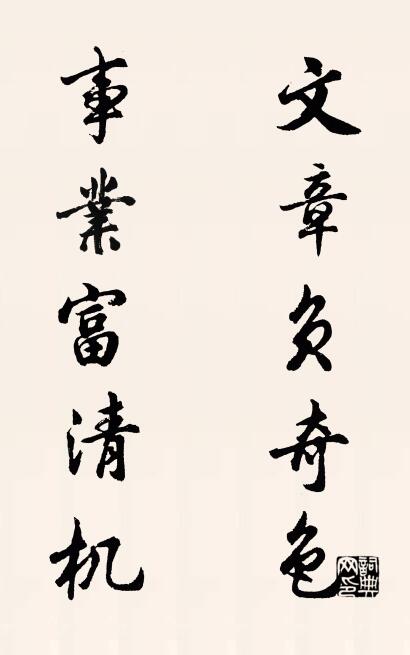 文章负奇色
事業富清机
詞典网印